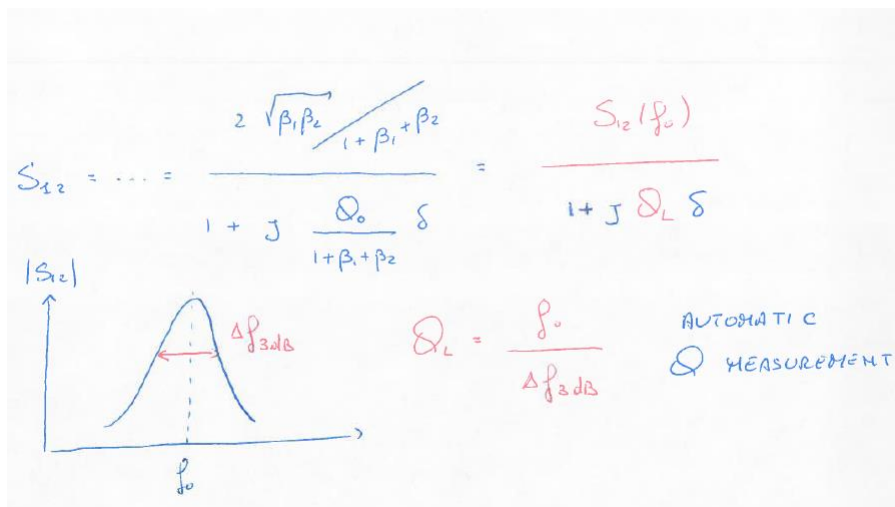 S₁₂ = .... = (2 √(β₁β₂) / (1 + β₁ + β₂)) / (1 + J (Q₀ / (1 + β₁ + β₂)) δ) = S₁₂(f₀) / (1 + J Q_L δ)
|S₁₂|
Δf₃dB
f₀
Q_L = f₀ / Δf₃dB
AUTOMATIC
Q MEASUREMENT